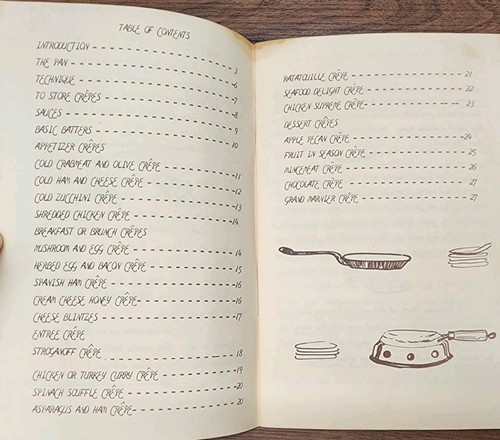 TABLE OF CONTENTS
INTRODUCTION - - - - - - - - - - 3
THE PAN - - - - - - - - - - 6
TECHNIQUE - - - - - - - - - - 7
TO STORE CRÊPES - - - - - - - - - - 8
SAUCES - - - - - - - - - - 9
BASIC BATTERS - - - - - - - - - - 10
APPETIZER CRÊPES
COLD CRABMEAT AND OLIVE CRÊPE - - - - - - - - - - 11
COLD HAM AND CHEESE CRÊPE - - - - - - - - - - 12
COLD ZUCCHINI CRÊPE - - - - - - - - - - 13
SHREDDED CHICKEN CRÊPE - - - - - - - - - - 14
BREAKFAST OR BRUNCH CRÊPES
MUSHROOM AND EGG CRÊPE - - - - - - - - - - 14
HERBED EGG AND BACON CRÊPE - - - - - - - - - - 15
SPANISH HAM CRÊPE - - - - - - - - - - 16
CREAM CHEESE HONEY CRÊPE - - - - - - - - - - 16
CHEESE BLINTZES - - - - - - - - - - 17
ENTREE CRÊPE
STROGANOFF CRÊPE - - - - - - - - - - 18
CHICKEN OR TURKEY CURRY CRÊPE - - - - - - - - - - 19
SPINACH SOUFFLE CRÊPE - - - - - - - - - - 20
ASPARAGUS AND HAM CRÊPE - - - - - - - - - - 20
RATATOUILLE CRÊPE - - - - - - - - - - 21
SEAFOOD DELIGHT CRÊPE - - - - - - - - - - 22
CHICKEN SUPREME CRÊPE - - - - - - - - - - 23
DESSERT CRÊPES
APPLE PECAN CRÊPE - - - - - - - - - - 24
FRUIT IN SEASON CRÊPE - - - - - - - - - - 25
MINCEMEAT CRÊPE - - - - - - - - - - 26
CHOCOLATE CRÊPE - - - - - - - - - - 27
GRAND MARNIER CRÊPE - - - - - - - - - - 27